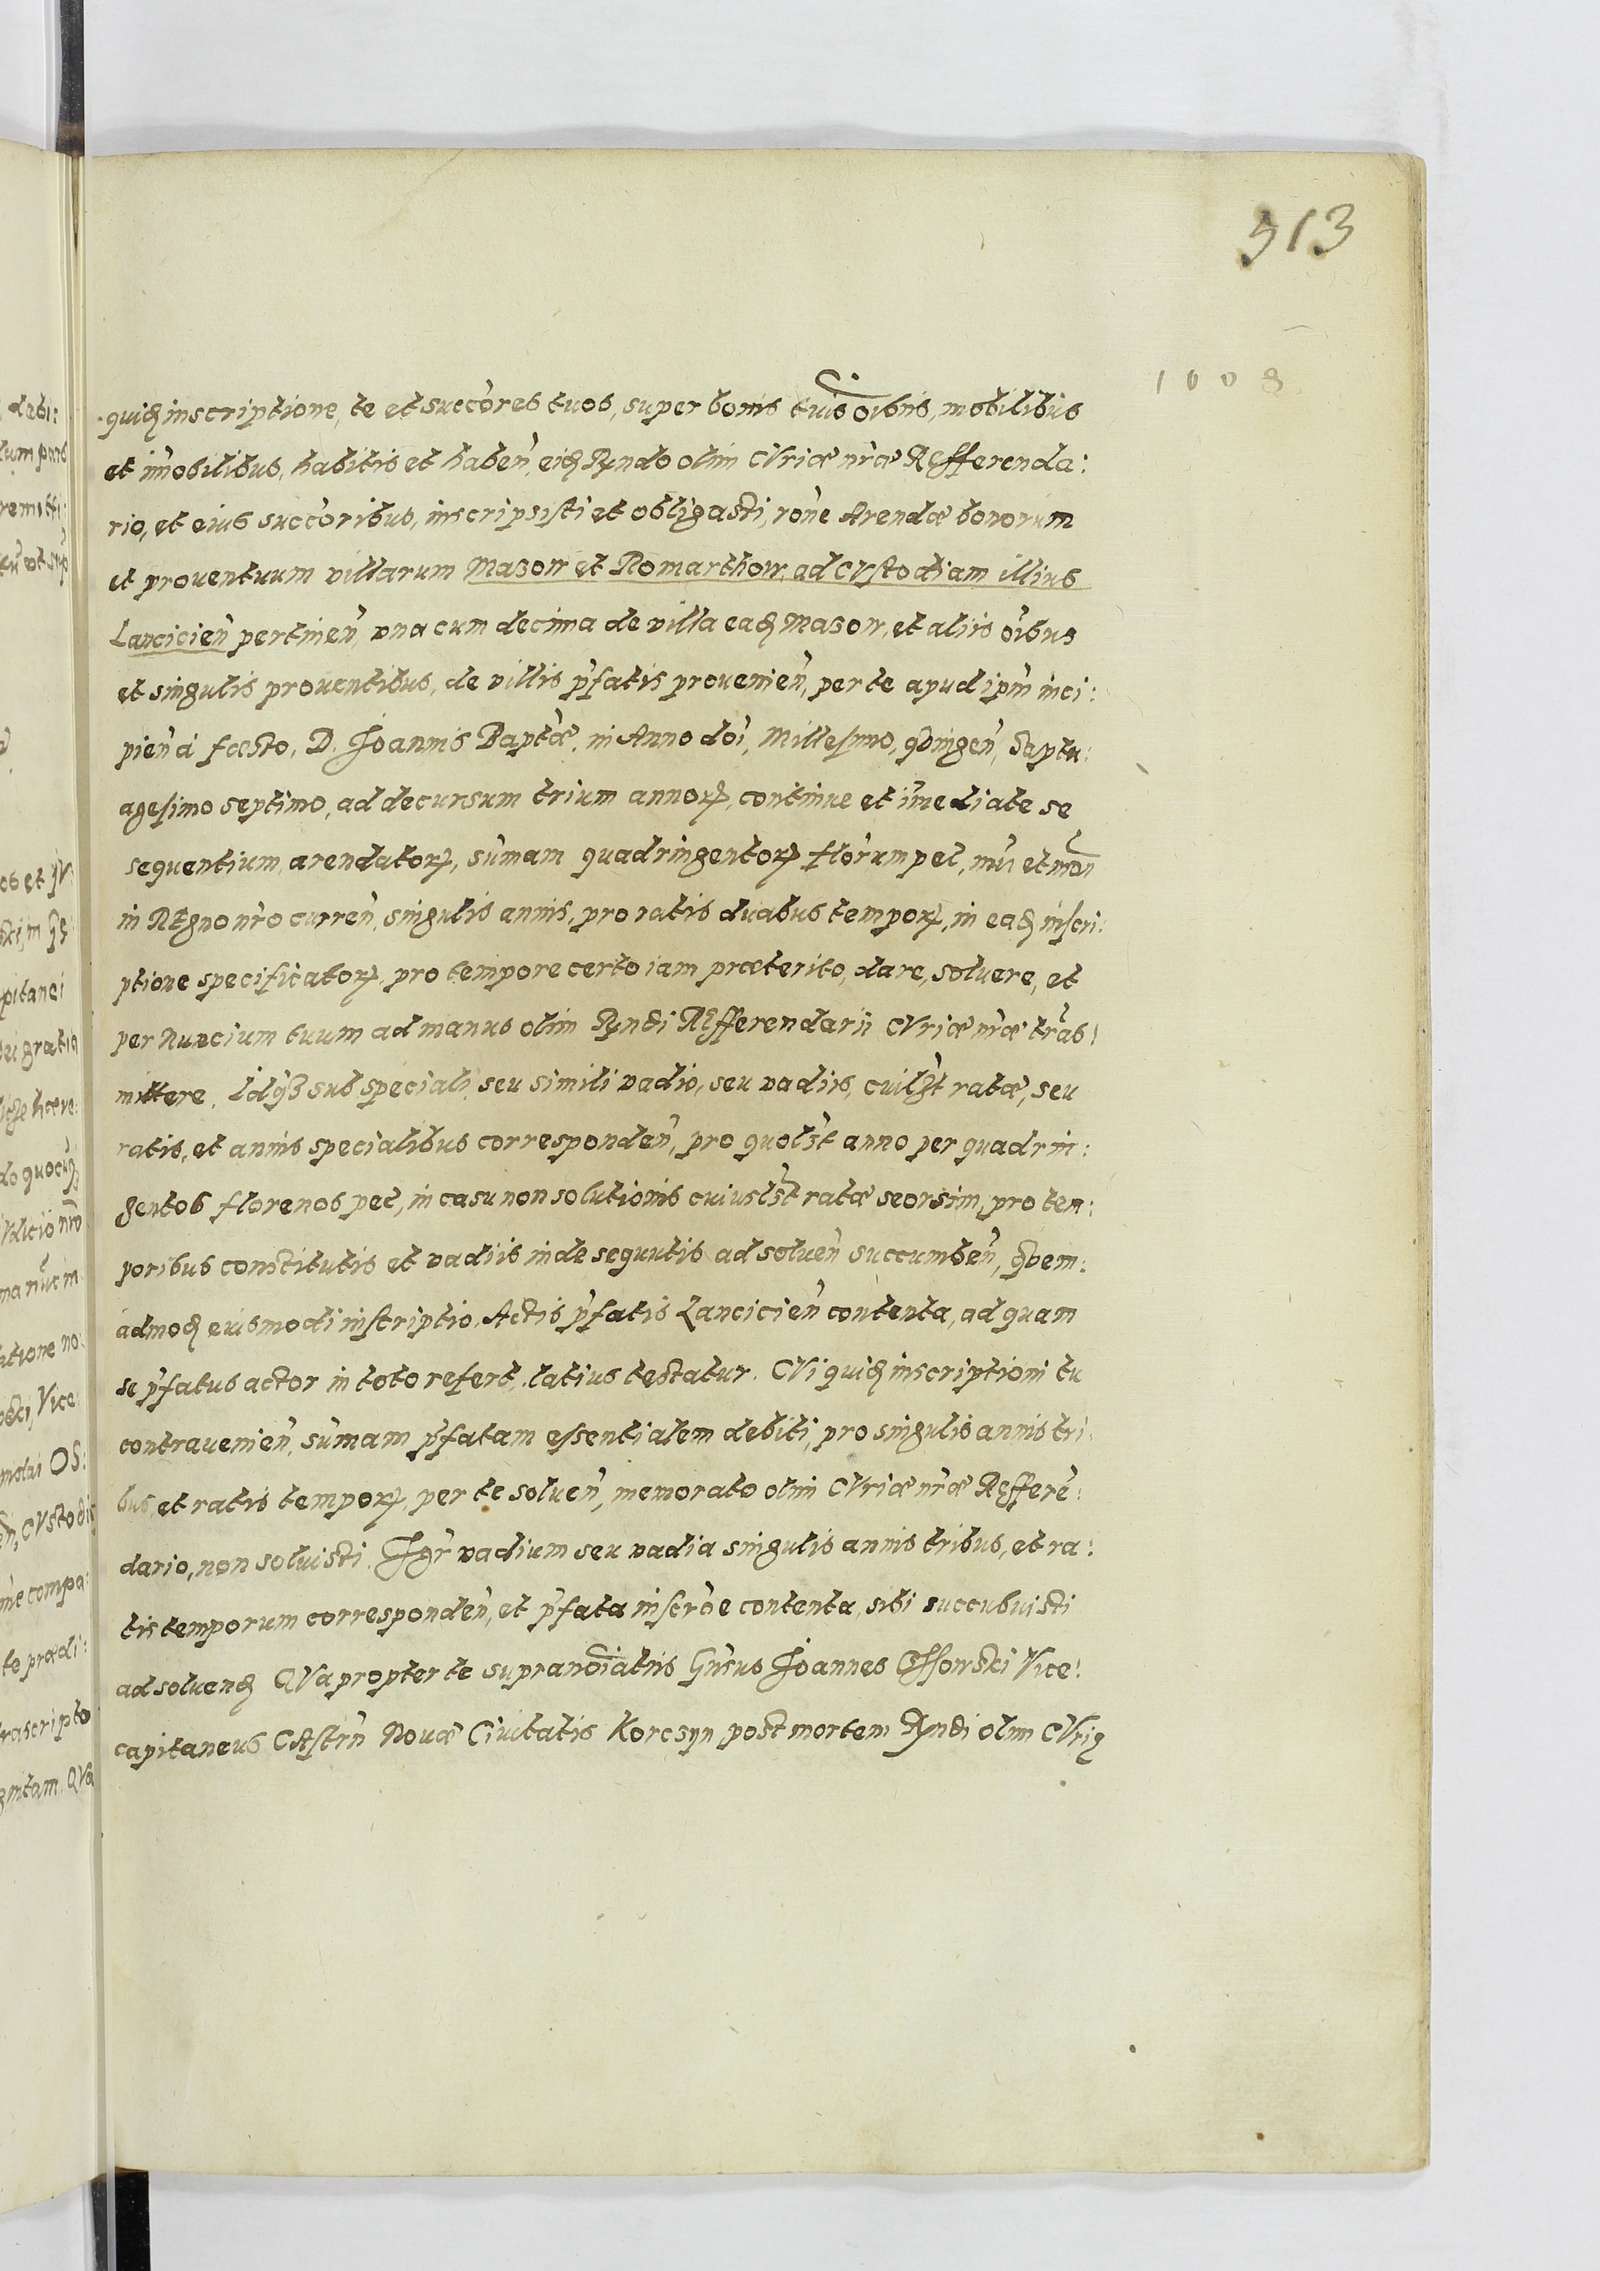 513
1008
quiđ inscriptione, te et succ̃ores tuos, super bonis tuis oĩbus, mobilibus
et im̃obilibus, habitis et haben̄, eiđ Rṇdo olim CVriæ nr̃æ REfferenda:
rio, et eius succ̃oribus, inscripsisti et obligasti, rõne Arendæ bonorum
et prouentuum villarum Mazow et Romarthow, ad CVstodiam illius
Lancicien̄ pertinen̄, vna cum decima de villa eađ Mazow, et aliis oĩbus
et singulis prouentibus, de villis p̃fatis prouenien̄, per te apud ip̃m inci:
pien̄ à fæsto, D. Joannis Bapt̃æ, in Anno dõi, Millesimo, qdingen̄, Septu:
agesimo septimo, ad decursum trium annoꝝ, continue et im̃ediate se
sequentium, arendatoꝝ, sum̃am quadringentoꝝ flõrum pol, mũi et mõn
in REgno nr̃o curren̄, singulis annis, pro ratis duabus tempoꝝ, in eađ inscri:
ptione specificatoꝝ, pro tempore certo iam præterito, dare, soluere, et
per Nuncium tuum ad manus olim Rṇdi REfferendarii CVriæ nr̃æ trãs:
mittere. Idqȝ sub speciali, seu simili vadio, seu vadiis, cuilȝt ratæ, seu
ratis, et annis specialibus corresponden̄, pro quolȝt anno per quadrin:
gentos florenos pol, in casu non solutionis cuiuslȝt ratæ seorsim, pro tem:
poribus constitutis et vadiis inde sequutis ad soluen̄ succumben̄, qvem:
admođ eiusmodi inscriptio, Actis p̃fatis Lancicien̄ contenta, ad quam
se p̃fatus actor in toto refert, latius testatur. CVi quiđ inscriptioni tu
contrauenien̄, sum̃am p̃fatam essentialem debiti, pro singulis annis tri:
bus, et ratis tempoꝝ, per te soluen̄, memorato olim CVriæ nr̃æ REfferẽ:
dario, non soluisti. Igr̃ vadium seu vadia singulis annis tribus, et ra:
tis temporum corresponden̄, et p̃fata inscr̃õe contenta, sibi succubuisti
ad soluenđ QVapropter te supranõiatus Gn̄sus Joannes Ossowski Vice:
capitaneus CAstrñ Nouæ Ciuitatis Korcsyn post mortem Rṇdi olim CVriæ